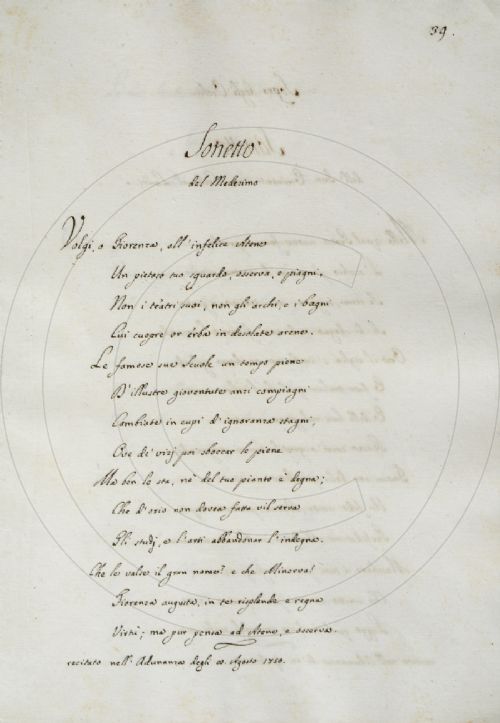 39.
Sonetto
del Medesimo
Volgi, o Fiorenza, all'infelice Atene
Un pietoso tuo sguardo, osserva, e piagni,
Non i teatri suoi, non gli archi, e i bagni
Cui cuopre or erba in desolate arene.
Le famose sue scuole un tempo piene
D'illustre gioventute anzi compiagni
Cambiate in cupi d'ignoranza stagni,
Ove de' vizj poi sboccar le piene
Ma ben le sta, nè del tuo pianto è degna;
Che d'ozio non dovea fatta vil serva
Gli studj, e l'arti abbandonar l'indegna.
Che le valse il gran nome? e che Minerva?
Fiorenza augusta, in te risplende e regna
Virtù; ma pur pensa ad Atene, e osserva.
recitato nell'Adunanza degli Agosto 1750.